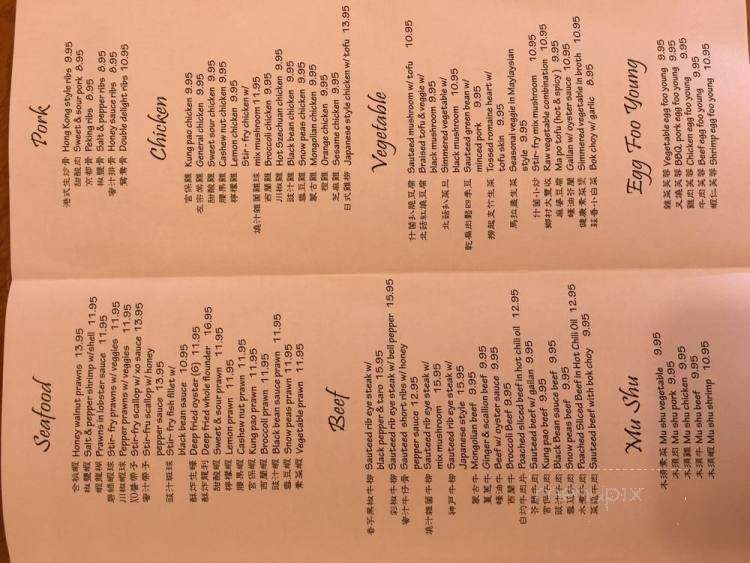 Seafood
合桃蝦 Honey walnut prawns 13.95
椒鹽蝦 Salt & pepper shrimp w/shell 11.95
蝦龍糊 Prawns in lobster sauce 11.95
Stir-fry prawns w/ veggies 11.95
川椒蝦球 Pepper prawns w/ veggies 11.95
XO醬帶子 Stir-fry scallop w/ xo sauce 13.95
蜜汁帶子 Stir-fry scallop w/ honey
pepper sauce 13.95
豉汁班球 Stir-fry fish fillet w/
black bean sauce 10.95
酥炸生蠔 Deep fried oyster (6) 11.95
酥炸龍利 Deep fried whole flounder 16.95
甜酸蝦 Sweet & sour prawn 11.95
檸檬蝦 Lemon prawn 11.95
腰果蝦 Cashew nut prawn 11.95
宮保蝦 Kung pao prawn 11.95
西蘭蝦 Broccoli prawn 11.95
豉汁蝦 Black bean sauce prawn 11.95
雪豆蝦 Snow peas prawn 11.95
素菜蝦 Vegetable prawn 11.95
Beef
香芋黑椒牛柳 Sauteed rib eye steak w/
black pepper & taro 15.95
彩椒牛柳 Sauteed rib eye steak w/ bell pepper 15.95
蜜汁牛仔骨 Sauteed short ribs w/ honey
pepper sauce 12.95
燒汁雜菌牛柳 Sauteed rib eye steak w/
mix mushroom 15.95
神戶牛柳 Sauteed rib eye steak w/
Japanese style 15.95
蒙古牛 Mongolian beef 9.95
薑蔥牛 Ginger & scallion beef 9.95
蠔油牛 Beef w/ oyster sauce 9.95
西蘭牛 Broccoli Beef 9.95
白灼牛肉片 Poached sliced beef in hot chili oil 12.95
芥蘭牛肉 Sauteed beef w/ gailan 9.95
宮保牛肉 Kung pao beef 9.95
豉汁牛肉 Black bean sauce beef 9.95
雪豆牛肉 Snow peas beef 9.95
水煮牛肉 Poached Sliced Beef in Hot Chili Oil 12.95
菜遠牛肉 Sauteed beef with bok choy 9.95
Mu Shu
木須素菜 Mu shu vegetable 9.95
木須肉 Mu shu pork 9.95
木須雞 Mu shu chicken 9.95
木須牛 Mu shu beef 9.95
木須蝦 Mu shu shrimp 10.95
Pork
港式生炒骨 Hong Kong style ribs 9.95
甜酸肉 Sweet & sour pork 8.95
京都骨 Peking ribs 8.95
椒鹽骨 Salt & pepper ribs 8.95
蜜汁排骨 Honey sauce ribs 8.95
鴛鴦骨 Double delight ribs 10.95
Chicken
宮保雞 Kung pao chicken 9.95
左宗棠雞 General chicken 9.95
甜酸雞 Sweet sour chicken 9.95
腰果雞 Cashew nut chicken 9.95
檸檬雞 Lemon chicken 9.95
燒汁雜菌雞球 Stir-fry chicken w/
mix mushroom 11.95
西蘭雞 Broccoli chicken 9.95
川椒雞 Hot Szechuan chicken 9.95
豉汁雞 Black bean chicken 9.95
雪豆雞 Snow peas chicken 9.95
蒙古雞 Mongolian chicken 9.95
橙雞 Orange chicken 9.95
芝麻雞 Sesame chicken 9.95
日式雞柳 Japanese style chicken w/ tofu 13.95
Vegetable
什菌扒脆豆腐 Sauteed mushroom w/ tofu 10.95
北菇紅燒豆腐 Braised tofu & veggie w/
black mushroom 9.95
北菇扒菜豆 Simmered vegetable w/
black mushroom 10.95
乾扁肉鬆四季豆 Sauteed green bean w/
minced pork 9.95
撈起支竹生菜 Tossed romaine heart w/
tofu skin 9.95
馬拉盞生菜 Seasonal veggie in Maylaysian
style 9.95
什菌小炒 Stir-fry mix mushroom 10.95
鄉村大豐收 Raw vegetable combination 10.95
麻婆豆腐 Ma po tofu (hot & spicy) 9.95
蠔油芥蘭 Gailan w/ oyster sauce 10.95
健康素菜煲 Simmered vegetable in broth 10.95
蒜香小白菜 Bok choy w/ garlic 8.95
Egg Foo Young
雜菜芙蓉 Vegetable egg foo young 9.95
叉燒芙蓉 BBQ. pork egg foo young 9.95
雞肉芙蓉 Chicken egg foo young 9.95
牛肉芙蓉 Beef egg foo young 9.95
蝦仁芙蓉 Shrimp egg foo young 10.95